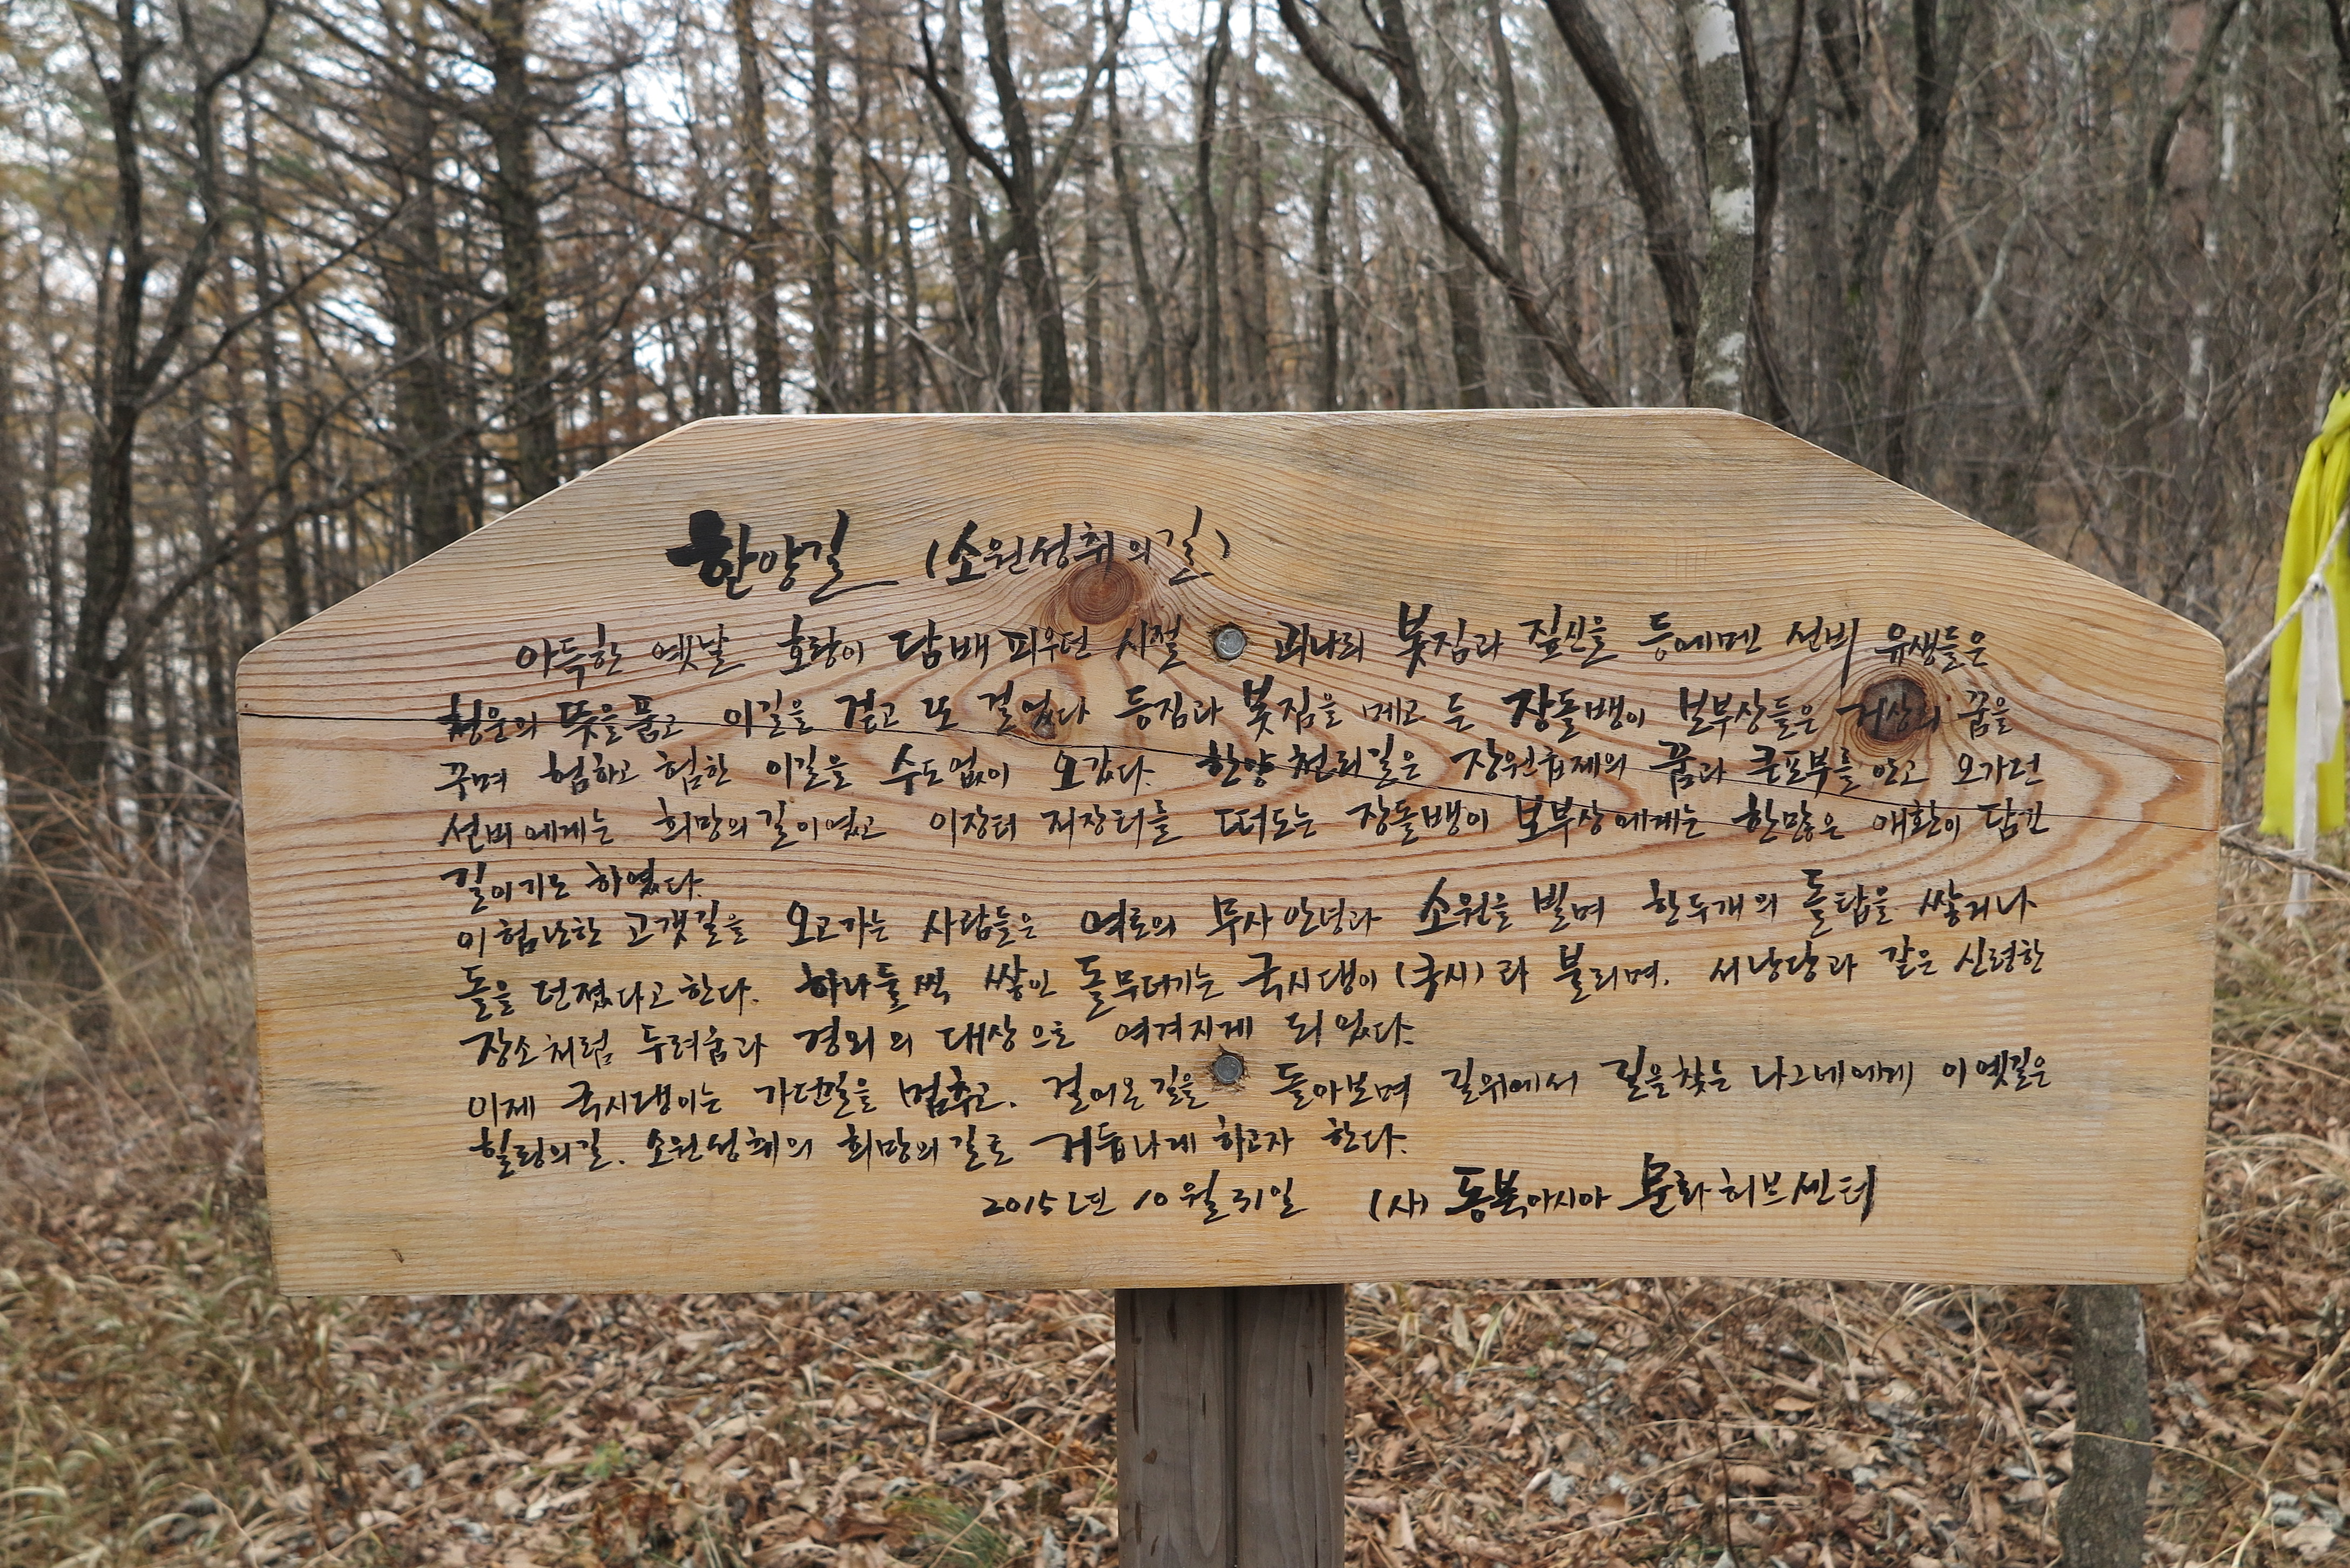 한양길 (소원성취의길)
아득한 옛날 호랑이 담배 피우던 시절 괴나리 봇짐과 짚신을 등에메인 선비 유생들은
청운의 뜻을품고 이길을 걷고 또 걸었다 등짐과 봇짐을 메고 든 장돌뱅이 보부상들은 거상의 꿈을
꾸며 험하고 험한 이길을 수도없이 오갔다. 한양 천리길은 장원급제의 꿈과 큰포부를 안고 오가던
선비에게는 희망의길이였고 이장터 저장터를 떠도는 장돌뱅이 보부상에게는 한많은 애환이 담긴
길이기도 하였다.
이험난한 고갯길을 오고가는 사람들은 여로의 무사안녕과 소원을 빌며 한두개의 돌탑을 쌓거나
돌을 던졌다고한다. 하나둘씩 쌓인 돌무더기는 국시댕이(국시)라 불리며. 서낭당과 같은 신령한
장소처럼 두려움과 경외의 대상으로 여겨지게 되었다.
이제 국시댕이는 가던길을 멈추고. 걸어온길을 돌아보며 길위에서 길을찾는 나그네에게 이옛길은
힐링의길. 소원성취의 희망의길로 거듭나게 하고자 한다.
2015년 10월 31일 (사) 동북아시아 문화허브센터